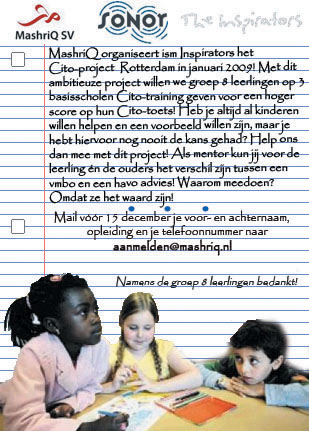 MashriQ SV
SONOR
The inspirators
MashriQ organiseert ism Inspirators het
Cito-project Rotterdam in januari 2009! Met dit
ambitieuze project willen we groep 8 leerlingen op 3
basisscholen Cito-training geven voor een hoger
score op hun Cito-toets! Heb je altijd al kinderen
willen helpen en een voorbeeld willen zijn, maar je
hebt hiervoor nog nooit de kans gehad? Help ons
dan mee met dit project! Als mentor kun jij voor de
leerling én de ouders het verschil zijn tussen een
vmbo en een havo advies! Waarom meedoen?
Omdat ze het waard zijn!
Mail vóór 15 december je voor- en achternaam,
opleiding en je telefoonnummer naar
aanmelden@mashriq.nl
Namens de groep 8 leerlingen bedankt!